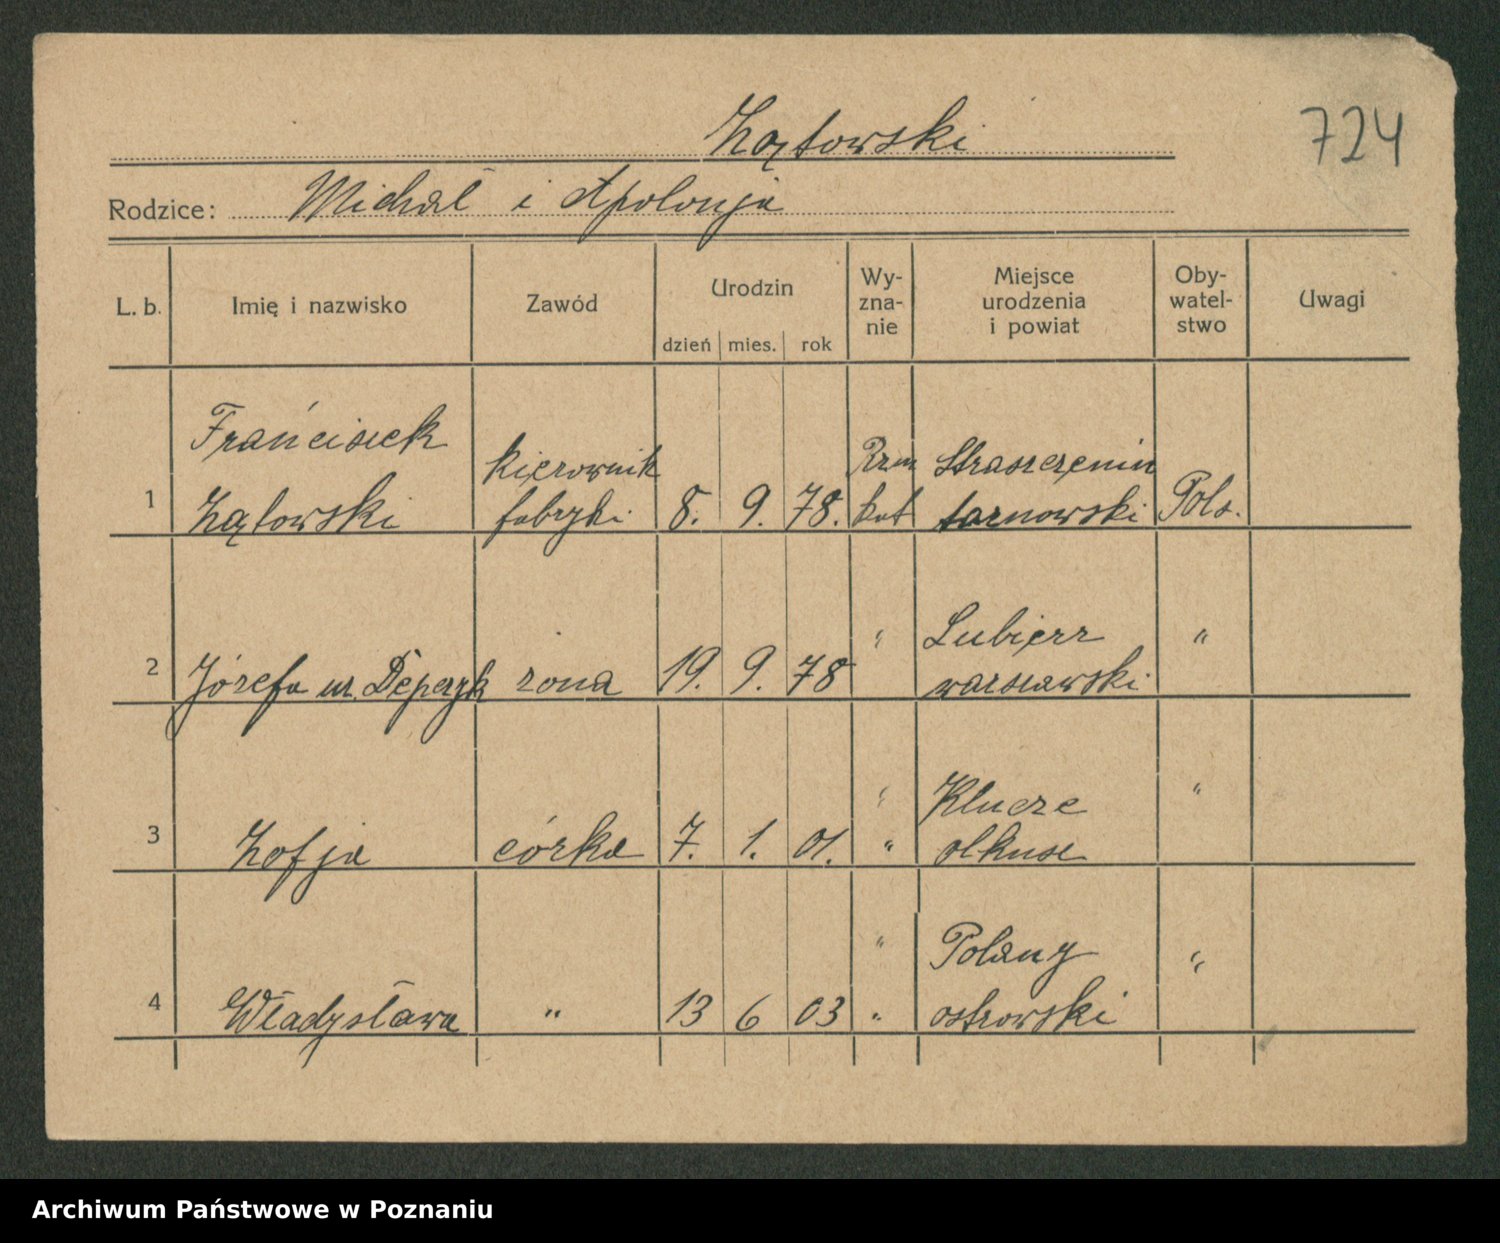 Zątowski
724
Rodzice: Michał i Apolonja
L. b. Imię i nazwisko Zawód Urodzin dzień mies. rok Wy-zna-nie Miejsce urodzenia i powiat Oby-watel-stwo Uwagi
Franciszek kierownik Rzm Straszęcin
1 Zątowski fabryki 8. 9. 78. kat tarnowski Pols.
" Lubierz "
2 Józefa ur. żona 19. 9. 78 warszawski
" Klucze "
3 Zofja córka 7. 1. 01. " olkusz
" Polany "
4 Władysława " 13 6 03 " ostrowski
Archiwum Państwowe w Poznaniu